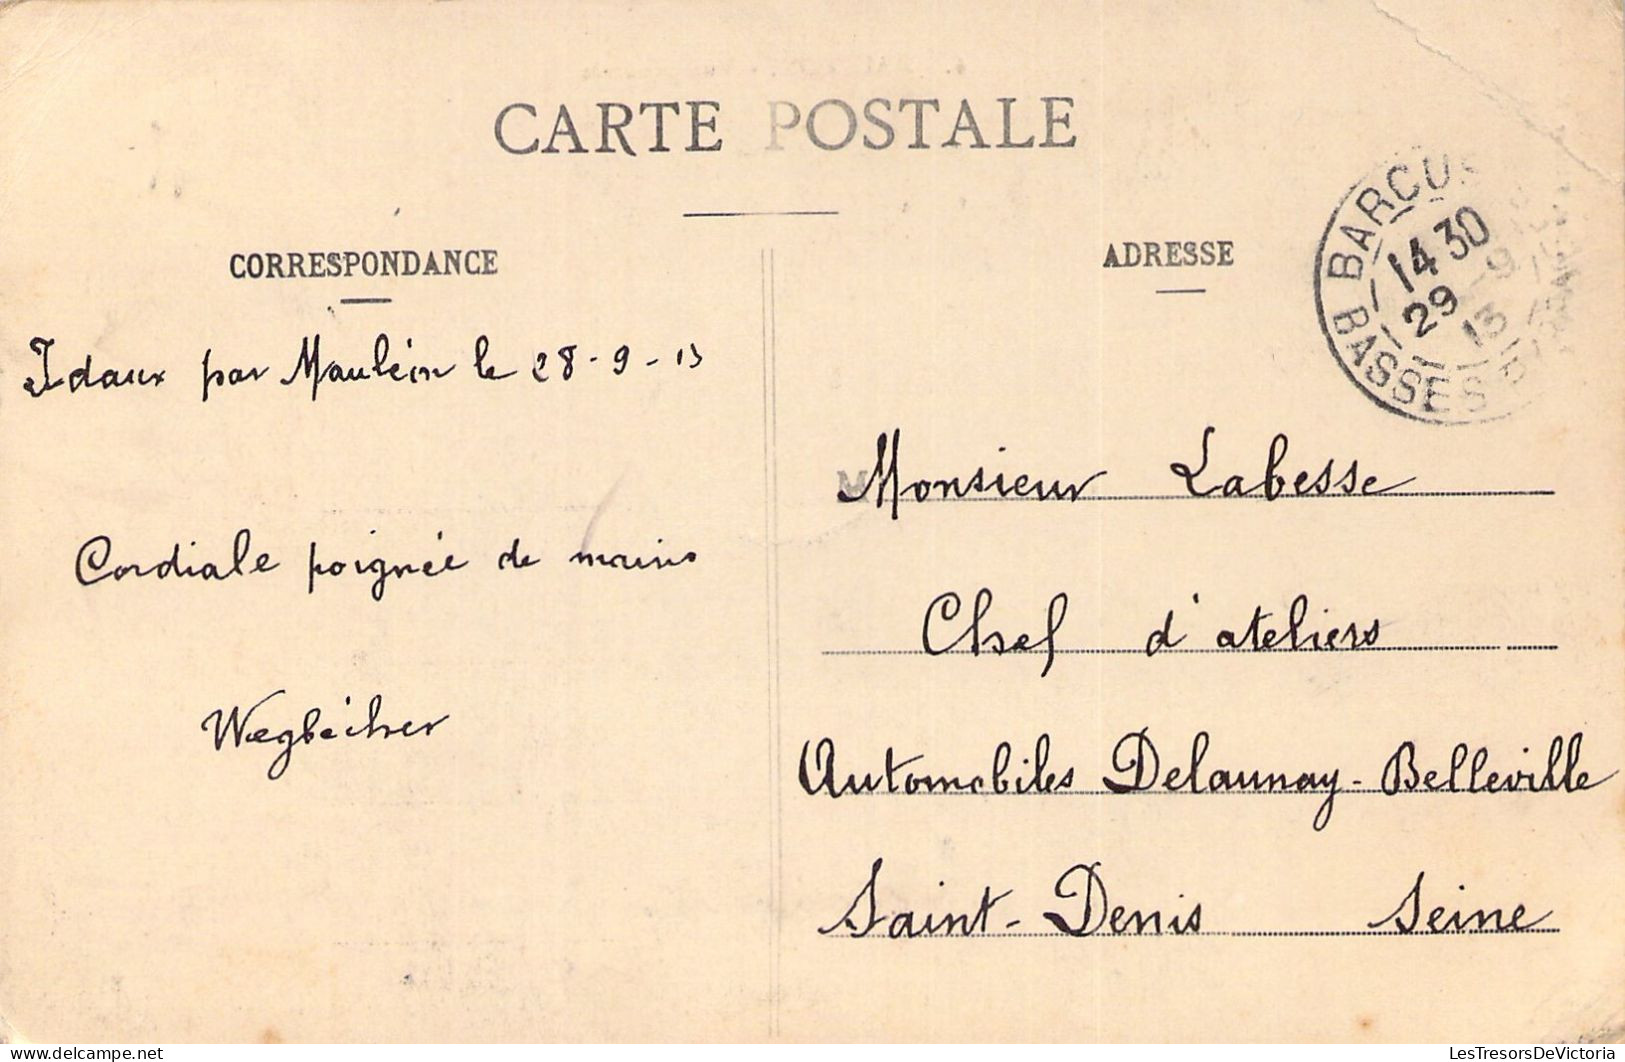 CARTE POSTALE
CORRESPONDANCE
Idaux par Mauléon le 28-9-13
Cordiale poignée de mains
Waegbécher
ADRESSE
BARCUS
14 30
29 - 9
13
BASSES
Monsieur Labesse
Chef d'ateliers
Automobiles Delaunay-Belleville
Saint-Denis Seine
LesTresorsDeVictoria
LesTresorsDeVictoria.com